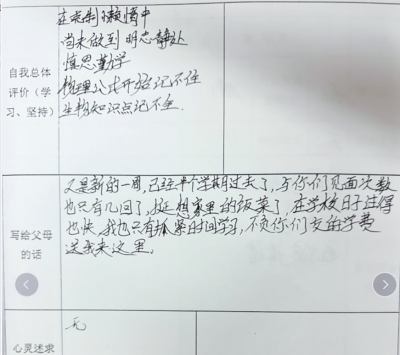 在未制懒惰中
尚未做到 明志静处
慎思勤学
自我总体
评价（学
习、坚持）
物理公式开始记不住
生物知识点记不全.
又是新的一周,已经半个学期过去了,与你们见面次数
也只有几回了,挺想家里的饭菜了,在学校日子过得
也快,我也只有抓紧时间学习,不负你们交的学费
送我来这里。
写给父母
的话
无
心灵述求